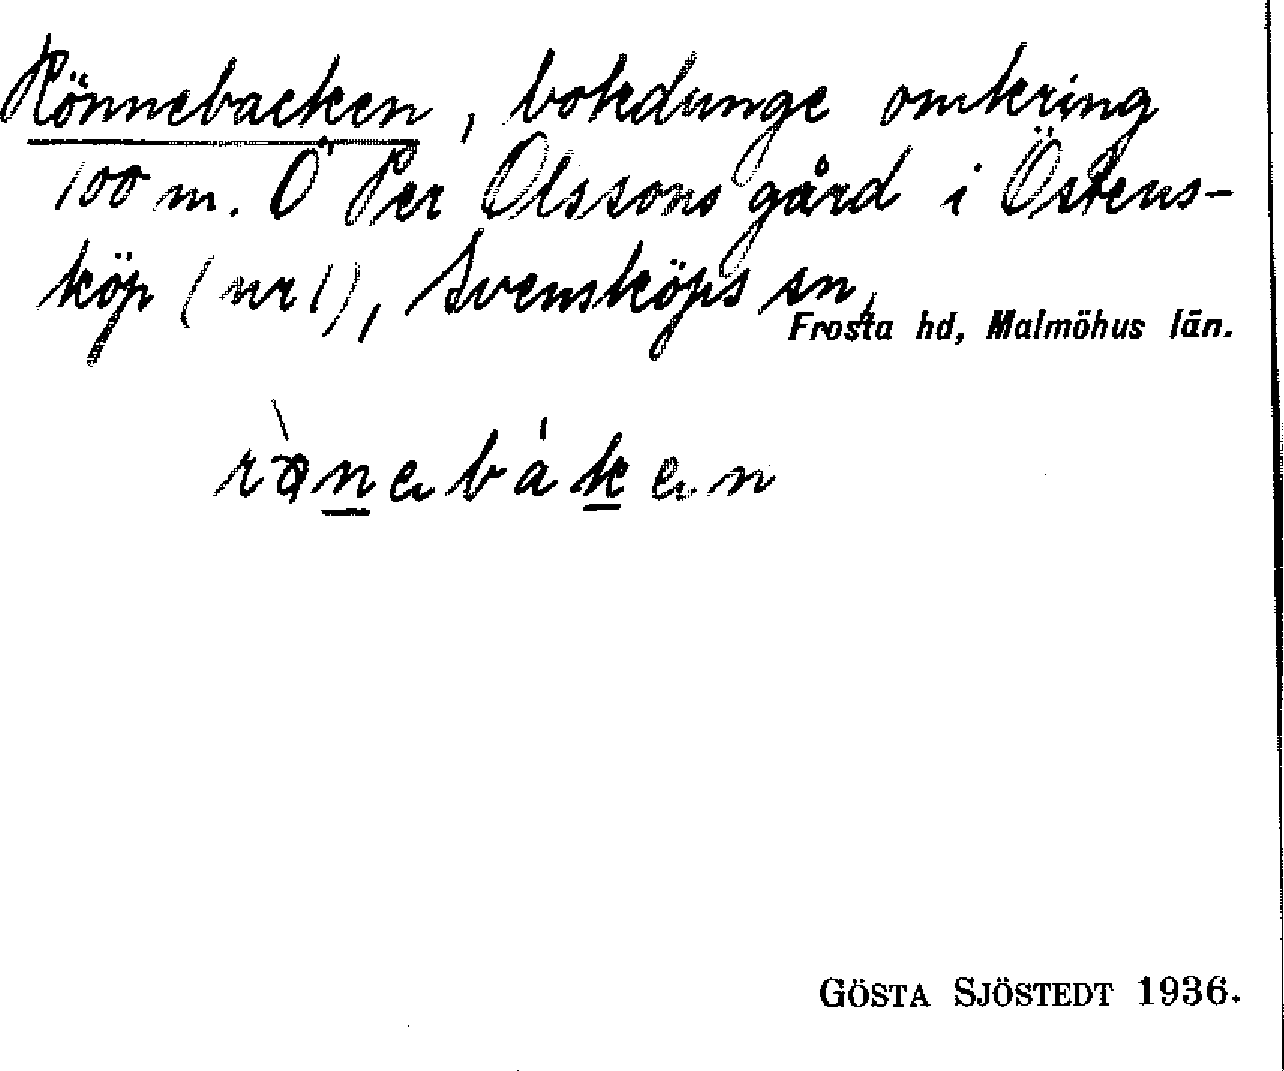 Rönnebacken, bokdunge omkring
100 m. Ö Per Olssons gård i Östens-
köp (nr 1), Svensköps sn,
Frosta hd, Malmöhus län.
GÖSTA SJÖSTEDT 1936.